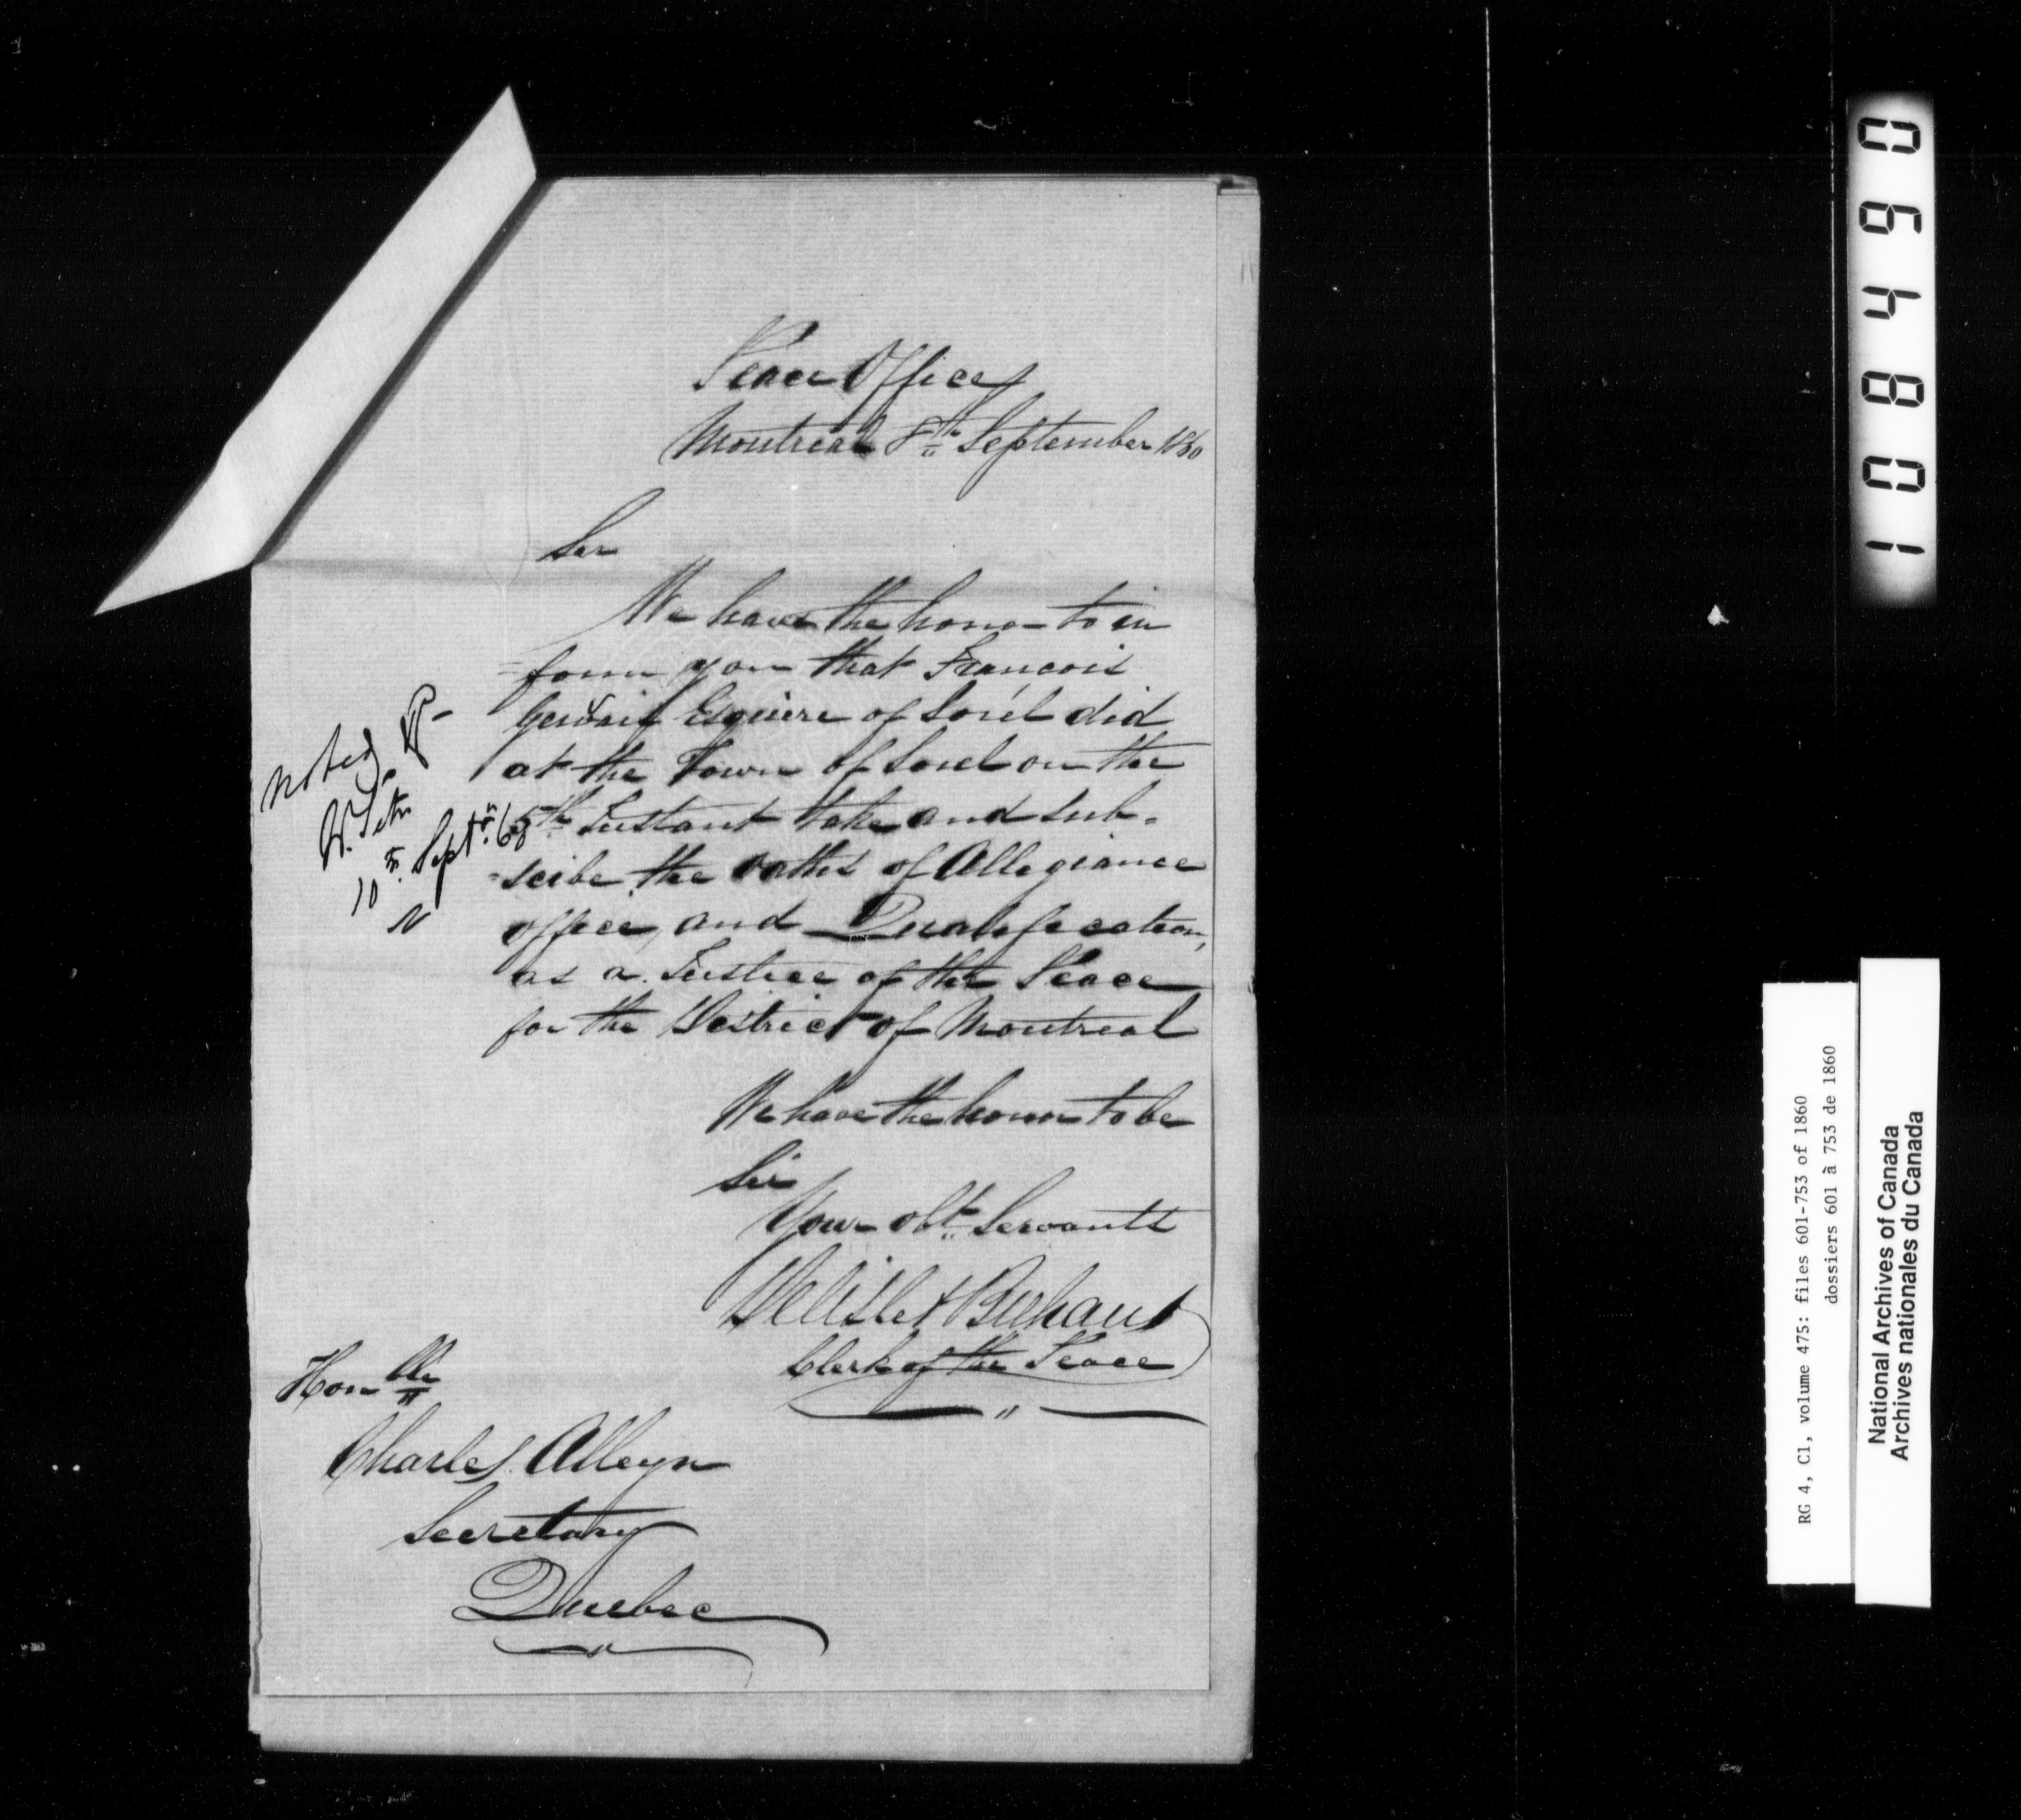 Peace Office
Montreal 8th September 1860
Sir
We have the honor to in
=form you that François
Gervais Esquire of Sorel did
at the Town of Sorel on the
5th Instant take and sub-
=scribe the oaths of Allegiance
office, and Qualification,
as a Justice of the Peace
for the District of Montreal
We have the honor to be
Sir
Your obt. Servants
Delisle & Brehaut
Clerk of the Peace
Honble
Charles Alleyn
Secretary
Quebec
noted
10 Septr. 60
108490
RG 4, C1, volume 475: files 601-753 of 1860
dossiers 601 à 753 de 1860
National Archives of Canada
Archives nationales du Canada